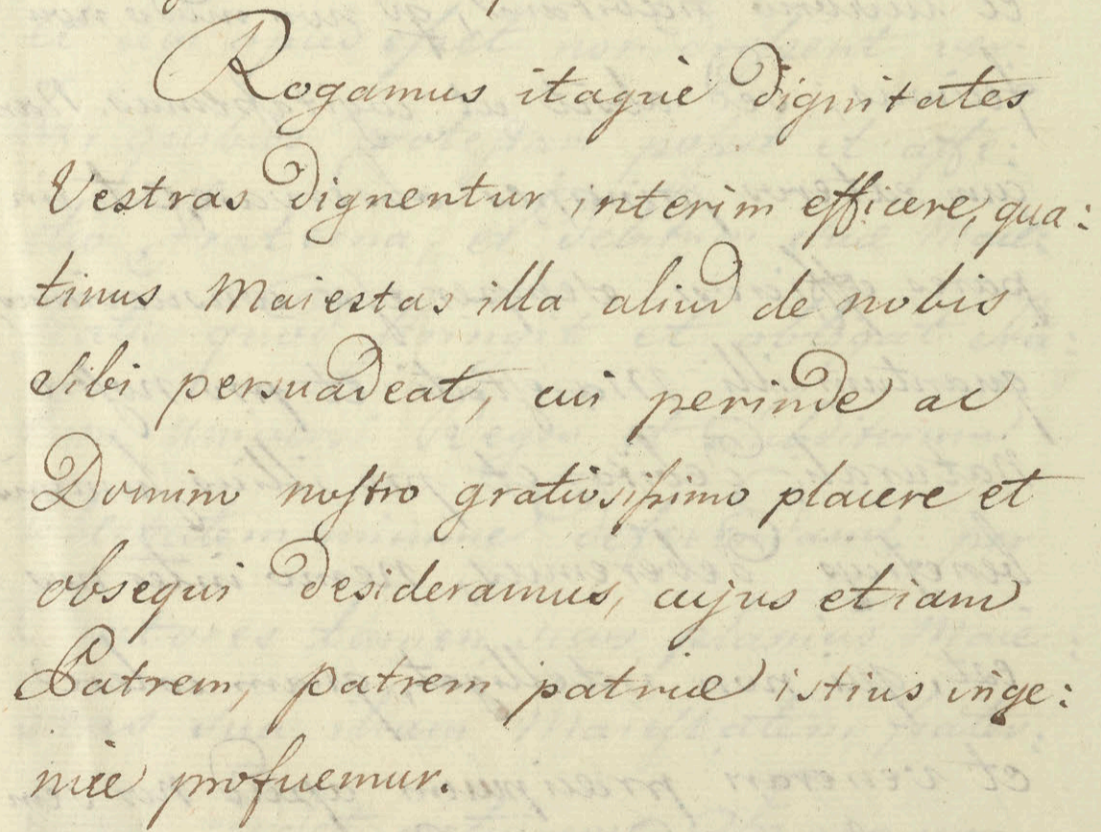 Rogamus itaque dignitates
Vestras dignentur interim efficere, qua:
tinus Maiestas illa aliud de nobis
sibi persuadeat, cui perinde ac
Domino nostro gratiosissimo placere et
obsequi desideramus, cujus etiam
Patrem, patrem patriae istius inge:
niae profuemur.